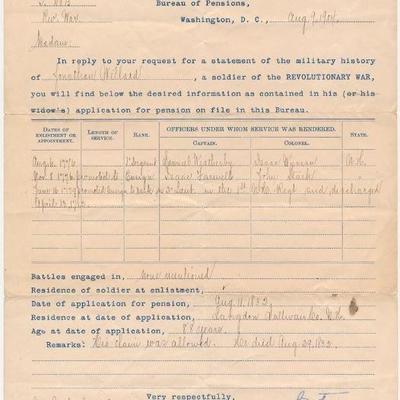 Bureau of Pensions,
Rev. War.
Washington, D. C., Aug. 9, 190
Madam:
In reply to your request for a statement of the military history
of Jonathan Willard, a soldier of the REVOLUTIONARY WAR,
you will find below the desired information as contained in his (or his
widow's) application for pension on file in this Bureau.
DATES OF ENLISTMENT OR APPOINTMENT. LENGTH OF SERVICE. RANK. OFFICERS UNDER WHOM SERVICE WAS RENDERED. STATE.
CAPTAIN. COLONEL.
Aug. 6, 1776 1st Sergeant Samuel Wetherby Isaac Wyman N.H.
Nov 8 1776 promoted to Ensign Isaac Farwell John Stark "
June 1779 promoted Lieut. in the 1st N.H. Regt and discharged
April 
Battles engaged in, none mentioned
Residence of soldier at enlistment,
Date of application for pension, Aug. 11, 1832
Residence at date of application, Langdon Sullivan Co. N.H.
Age at date of application, 88 years.
Remarks: His claim was allowed. He died Aug. 29, 1832.
Very respectfully,